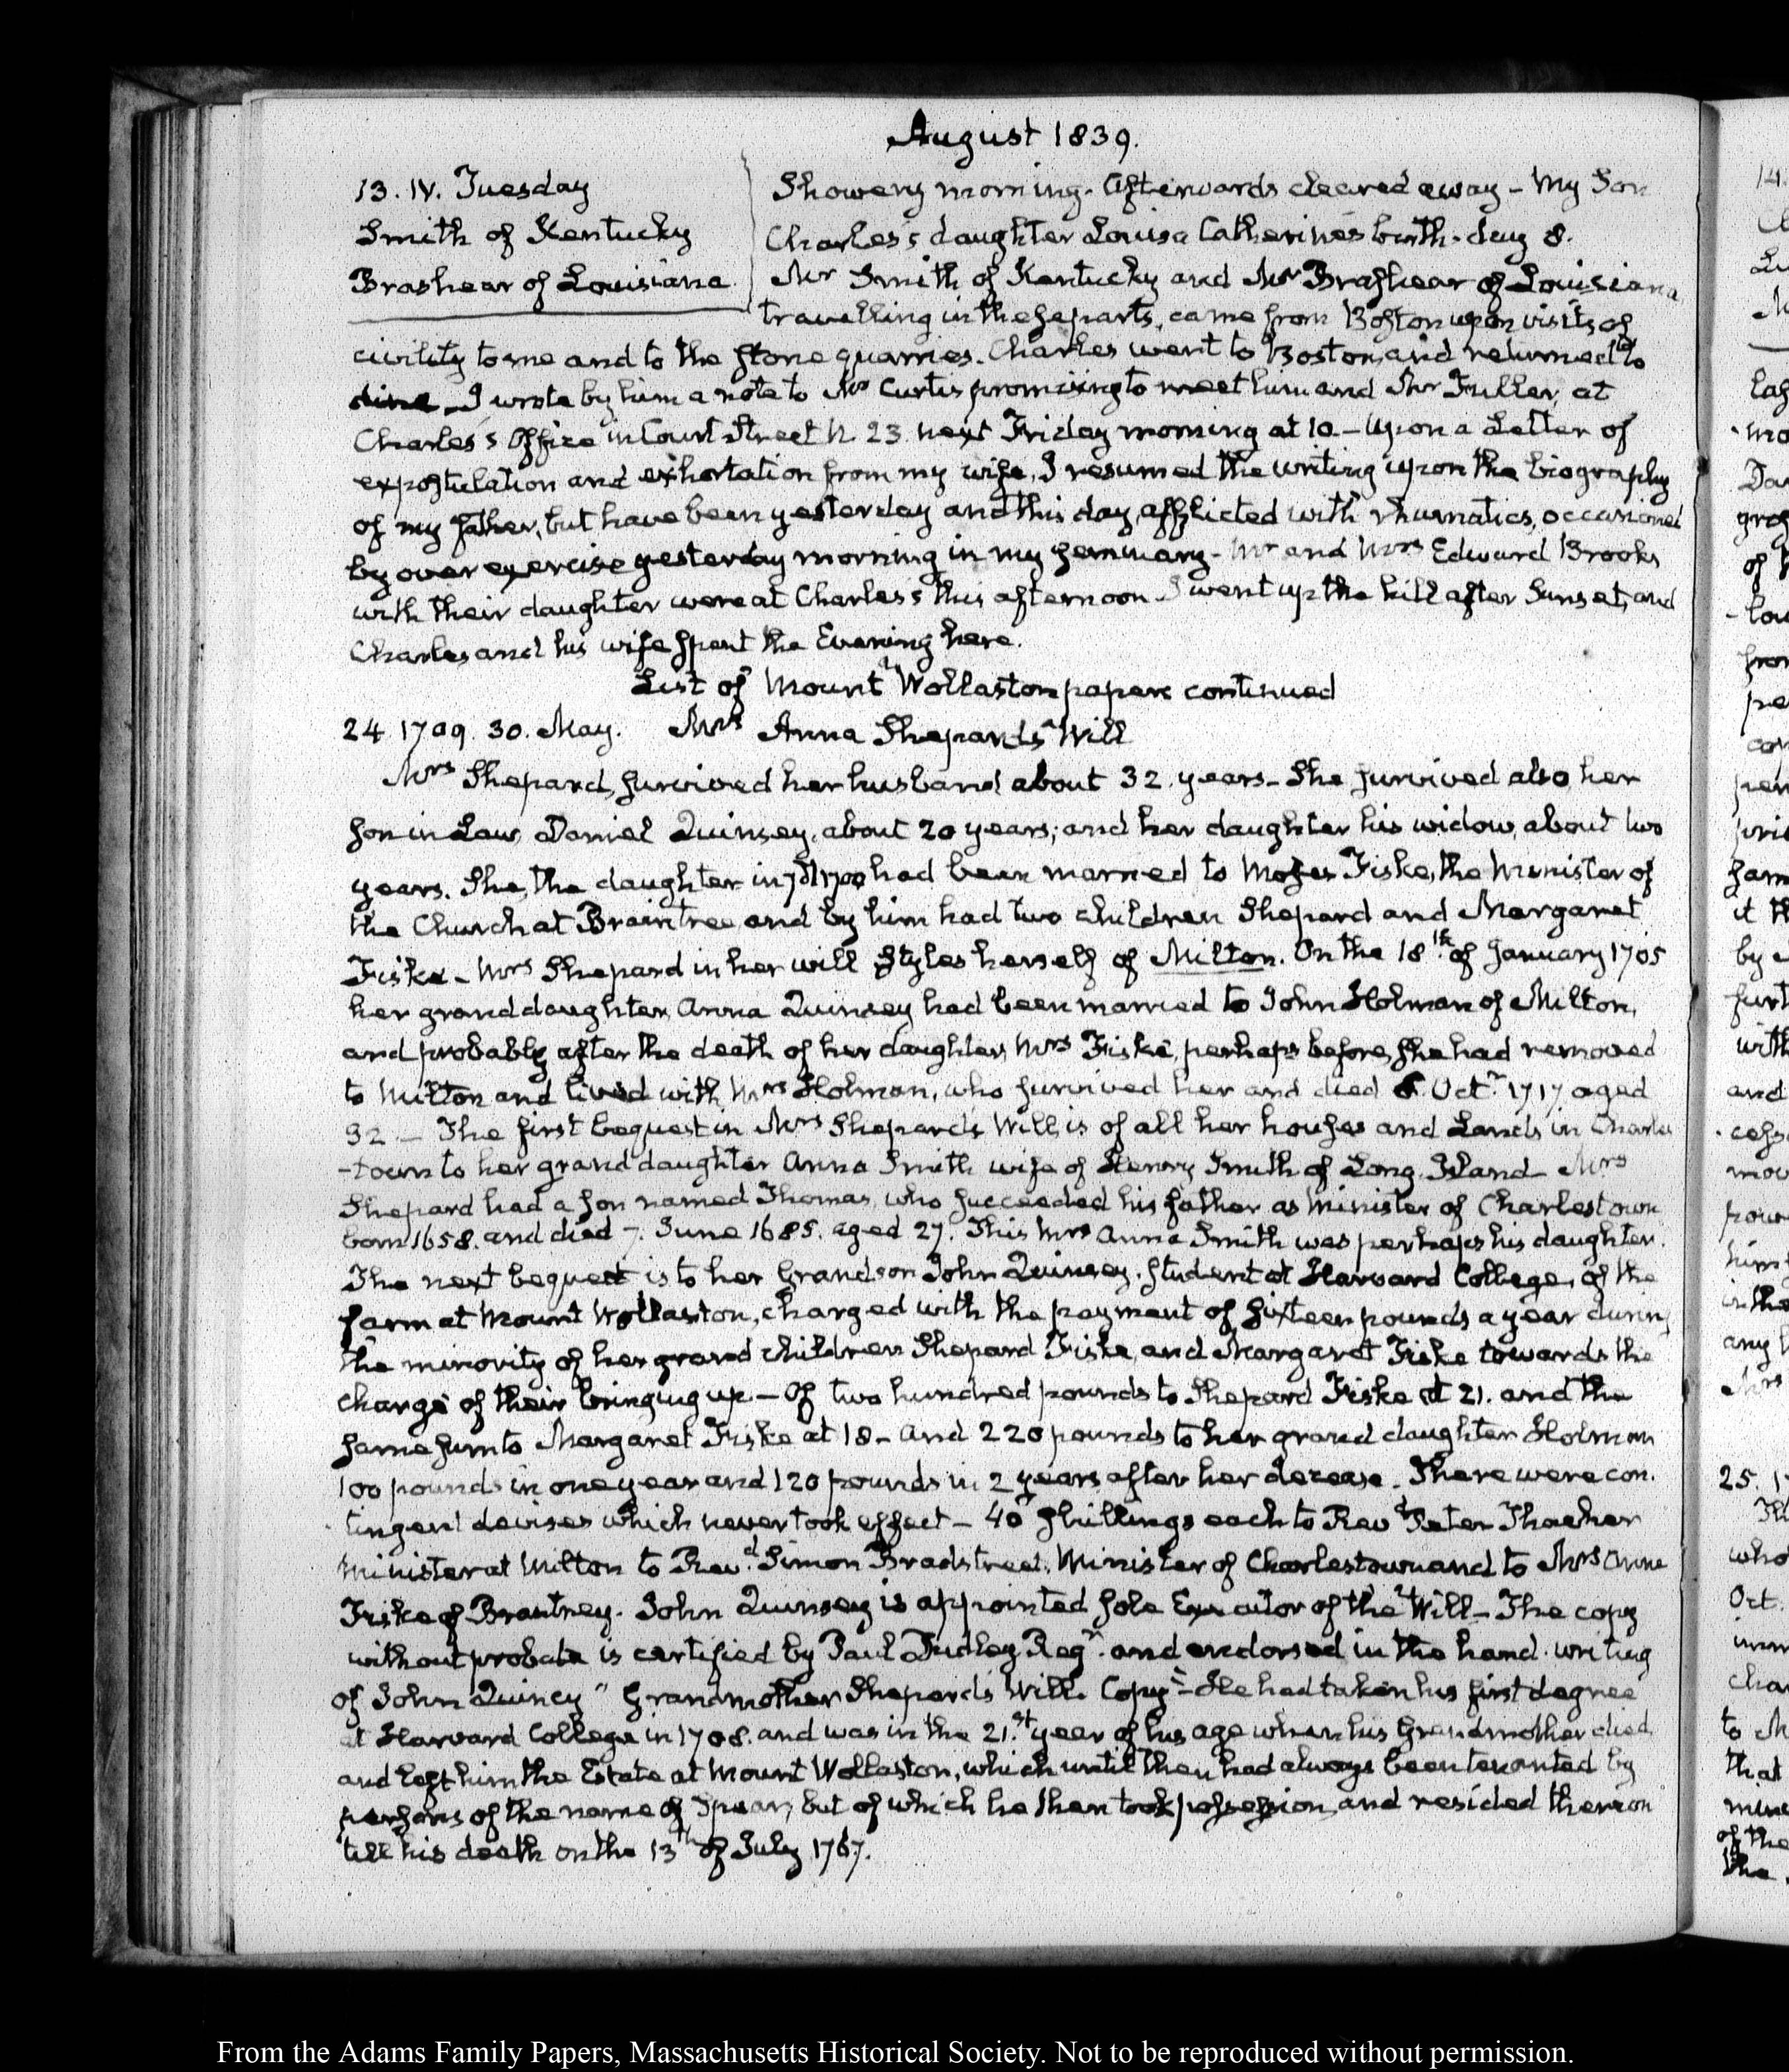 August 1839.
13. IV. Tuesday
Smith of Kentucky
Brashear of Louisiana.
Showery morning. Afterwards cleared away – My Son
Charles's daughter Louisa Catherine's birth-day 8.
Mr Smith of Kentucky and Mr Brashear of Louisiana
travelling in these parts, came from Boston upon visits of
civility to me and to the stone quarries. Charles went to Boston, and returned to
dine – I wrote by him a note to Mr Curtis promising to meet him and Mr Fuller, at
Charles's Office in Court Street N. 23. next Friday morning at 10 – Upon a Letter of
expostulation and exhortation from my wife, I resumed the writing upon the biography
of my father, but have been yesterday and this day, afflicted with rhumatics, occasioned
by over exercise yesterday morning in my seminary – Mr and Mrs Edward Brooks
with their daughter were at Charles's this afternoon. I went up the hill after Sunset, and
Charles and his wife spent the Evening here.
List of Mount Wollaston papers continued
24. 1709. 30. May. Mrs Anna Shepard's Will
Mrs Shepard, survived her husband about 32. years – She survived also, her
son in Law, Daniel Quinsey, about 20 years; and her daughter his widow, about two
years. She, the daughter in 1700 had been married to Moses Fiske, the Minister of
the Church at Braintree, and by him had two children Shepard and Margaret
Fiske – Mrs Shepard in her will styles herself of Milton. On the 18th of January 1705
her grand daughter, Anna Quinsey had been married to John Holman of Milton,
and probably after the death of her daughter, Mrs Fiske, perhaps before, she had removed
to Milton and lived with Mrs Holman, who survived her and died Octr 1717 aged
32 – The first bequest in Mrs Shepard's Will, is of all her houses and Lands in Charles
-town to her grand daughter Anna Smith wife of Henry Smith of Long Island – Mrs
Shepard had a son named Thomas, who succeeded his father as Minister of Charlestown
born 1658. and died 7. June 1685. aged 27. This Mrs Anna Smith was perhaps his daughter.
The next bequest is to her Grandson John Quinsey, student at Harvard College, of the
farm at Mount Wollaston, charged with the payment of sixteen pounds a year during
the minority of her grand children Shepard Fiske, and Margaret Fiske towards the
charge of their bringing up – Of two hundred pounds to Shepard Fiske at 21. and the
same sum to Margaret Fiske at 18 – and 220 pounds to her grand daughter Holman
100 pounds in one year and 120 pounds in 2 years after her decease. There were con
tingent devises which never took effect – 40 shillings each to Revd Peter Thacher
Minister at Milton to Revd Simon Bradstreet, Minister of Charlestown and to Mrs Anne
Fiske of Brantrey. John Quinsey is appointed sole Executor of the Will – The copy
without probate is certified by Paul Dudley Regr. and endorsed in the hand-writing
of John Quincy "Grandmother Shepard's Will. Copy" – He had taken his first degree
at Harvard College in 1708. and was in the 21.st year of his age when his Grandmother died
and left him the Estate at Mount Wollaston, which until then had always been tenanted by
persons of the name of Spear, but of which he then took possession, and resided thereon
till his death on the 13th of July 1767.
From the Adams Family Papers, Massachusetts Historical Society. Not to be reproduced without permission.